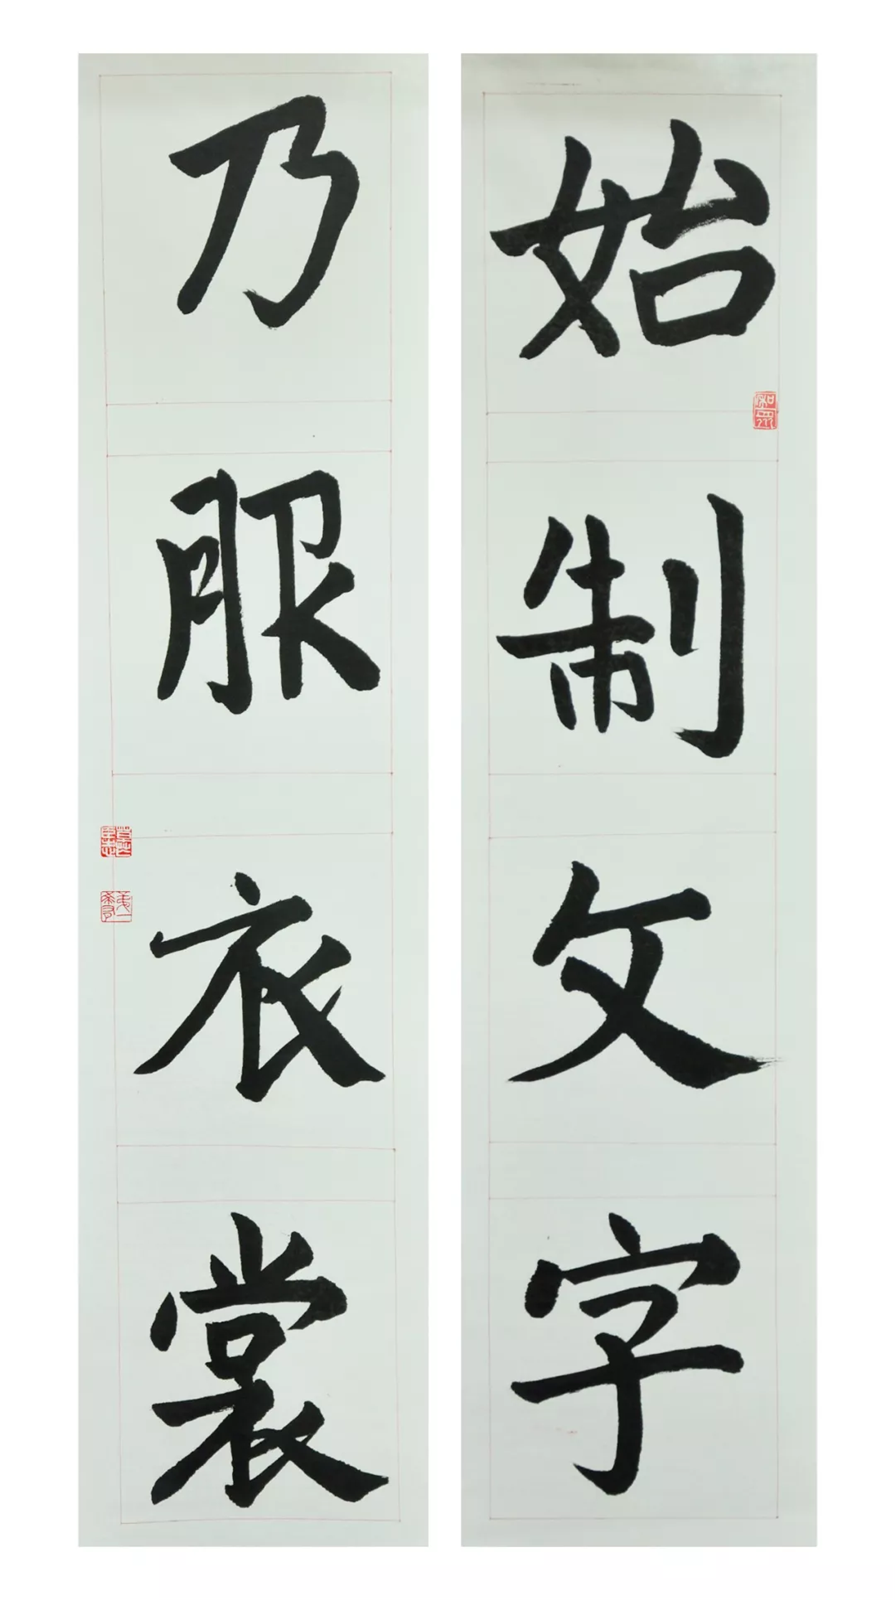 始制文字
乃服衣裳